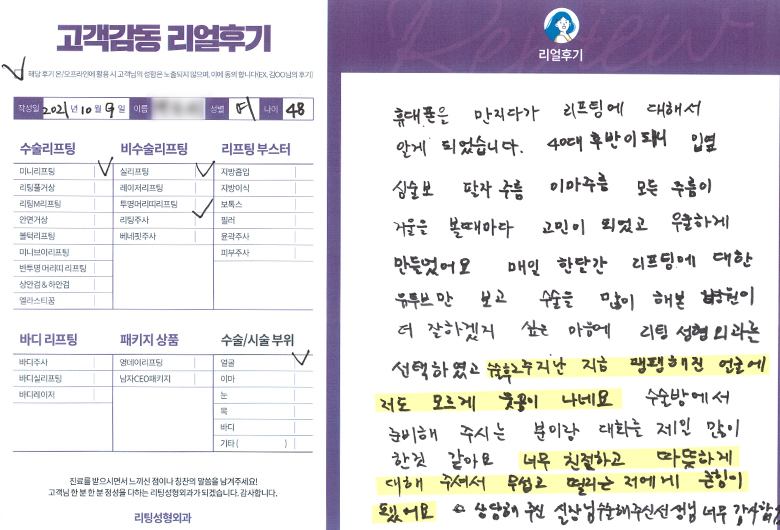 고객감동 리얼후기
해당 후기 온/오프라인에 활용 시 고객님의 성함은 노출되지 않으며, 이에 동의 합니다(EX. 김OO님의 후기)
작성일 2021년 10월 9일 이름 성별 여 나이 48
수술리프팅 비수술리프팅 리프팅 부스터
미니리프팅 실리프팅 지방흡입
리팅풀거상 레이저리프팅 지방이식
리팅M리프팅 투명머리띠리프팅 보톡스
안면거상 리팅주사 필러
볼턱리프팅 베네핏주사 윤곽주사
미니브이리프팅 피부주사
반투명 머리띠 리프팅
상안검 & 하안검
엘라스티꿈
바디 리프팅 패키지 상품 수술/시술 부위
바디주사 영데이리프팅 얼굴
바디실리프팅 남자CEO패키지 이마
바디레이저 눈
목
바디
기타 ( )
진료를 받으시면서 느끼신 점이나 칭찬의 말씀을 남겨주세요!
고객님 한 분 한 분 정성을 다하는 리팅성형외과가 되겠습니다. 감사합니다.
리팅성형외과
Review
리얼후기
휴대폰을 만지다가 리프팅에 대해서
알게 되었습니다. 40대 후반이 되니 입옆
심술보 팔자 주름 이마주름 모든 주름이
거울을 볼때마다 고민이 되었고 우울하게
만들었어요 매일 한달간 리프팅에 대한
유투브만 보고 수술을 많이 해본 병원이
더 잘하겠지 싶은 마음에 리팅성형외과를
선택하였고 수술후2주지난 지금 팽팽해진 얼굴에
저도 모르게 웃음이 나네요 수술방에서
준비해 주시는 분이랑 대화를 제일 많이
한것 같아요 너무 친절하고 따뜻하게
대해 주셔서 무섭고 떨리는 저에게 큰힘이
됐어요 상담해 주신 실장님 수술해주신 선생님 너무 감사합